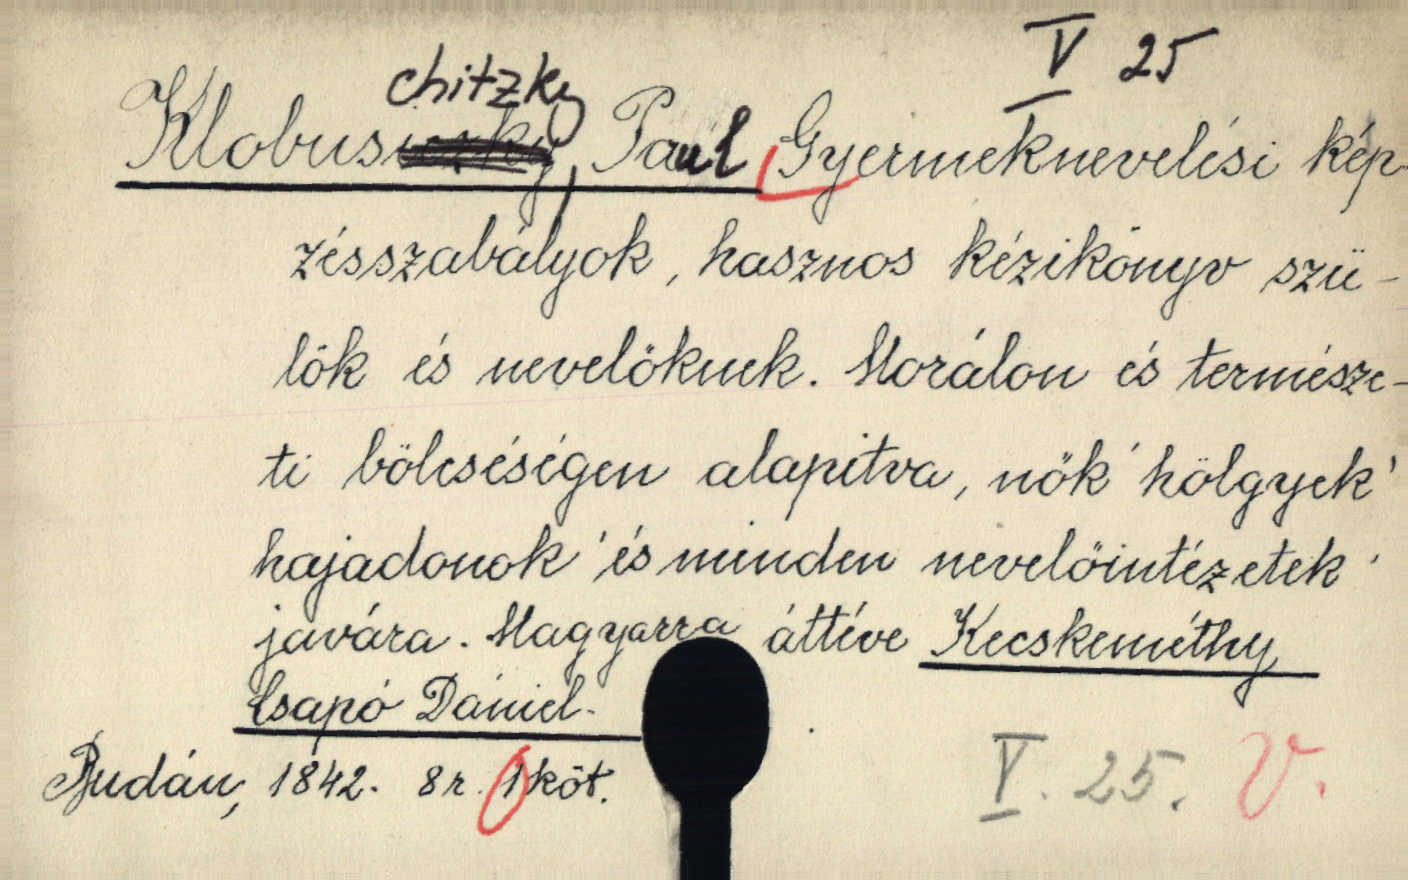 V 25
chitzky
Klobusiczky, Paul Gyermeknevelési kép-
zésszabályok, hasznos kézikönyv szü-
lök és nevelöknek. Morálon és természe-
ti bölcseségen alapitva, nök' hölgyek'
hajadonok' és minden nevelöintézetek'
javára. Magyarra áttéve Kecskeméthy
Csapó Dániel.
Budán, 1842. 8r. 1 köt.
V. 25. V.